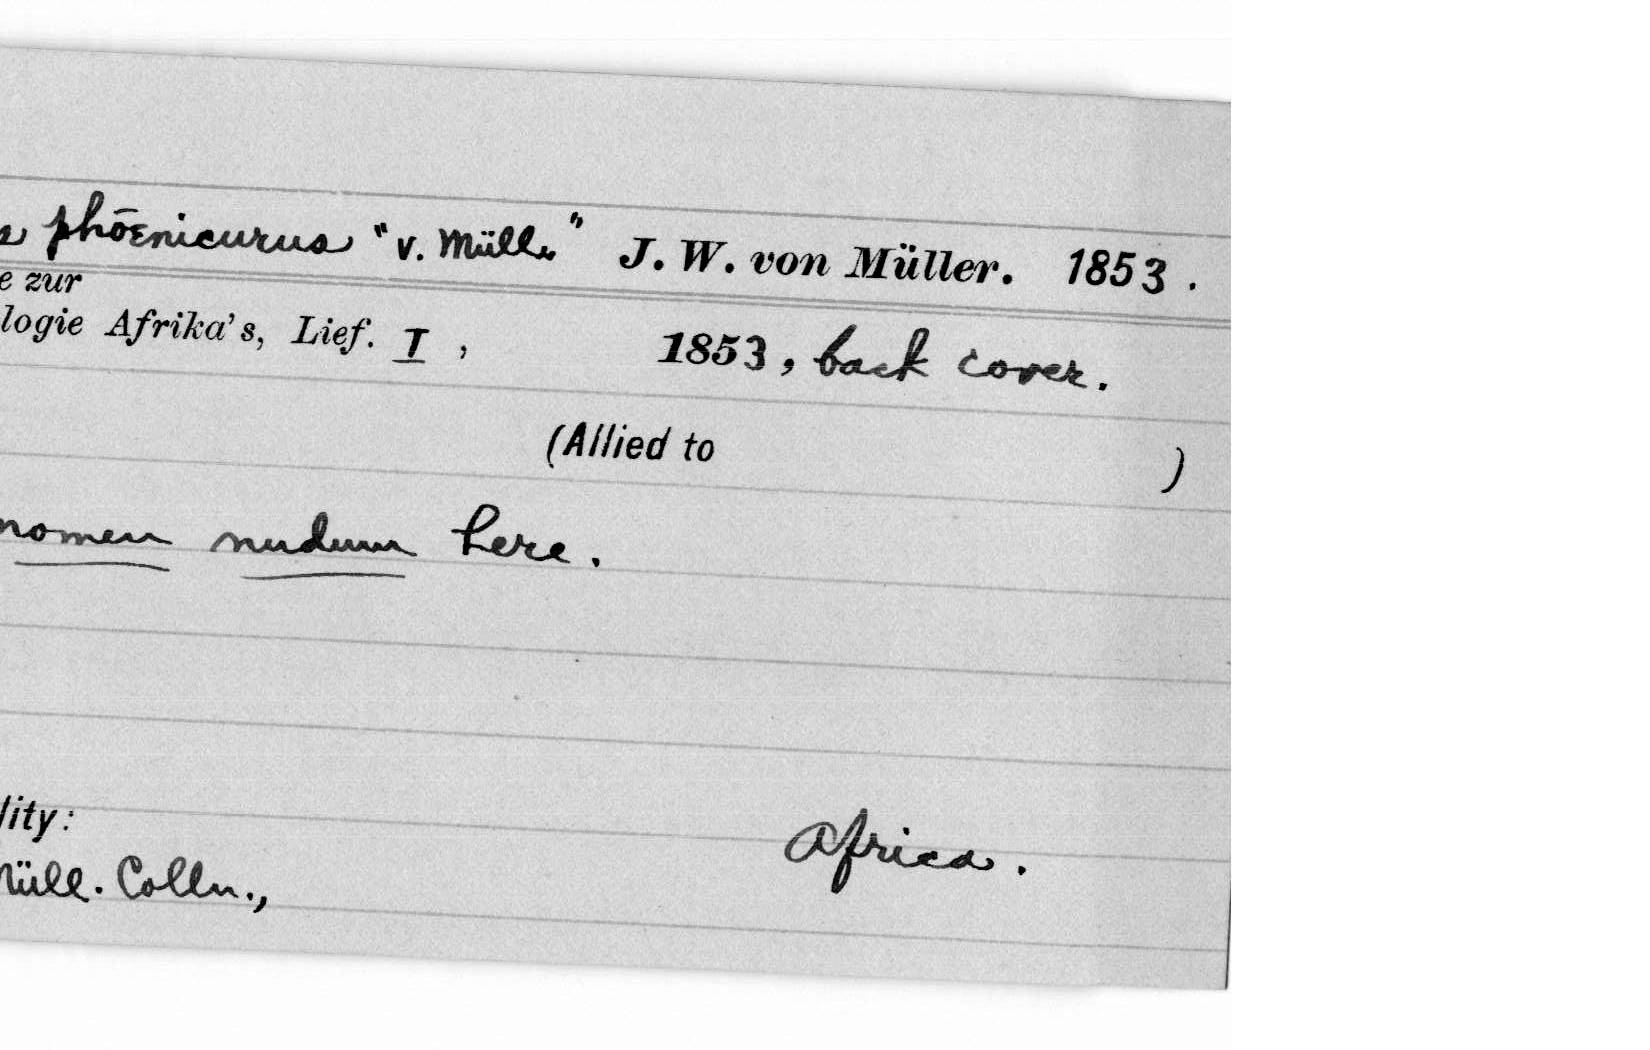 phoenicurus "v. Müll." J. W. von Müller. 1853.
e zur
logie Afrika's, Lief. I, 1853, back cover.
(Allied to )
nomen nudum here.
lity: Africa.
Müll. Colln.,